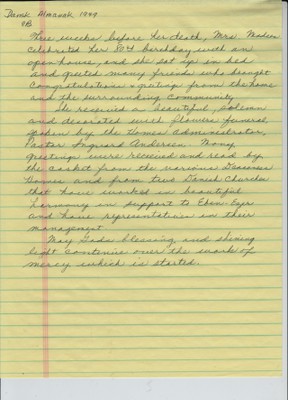 Dansk Almanak 1949
98
Three weeks before her death, Mrs. Madsen
celebrated her 84 birthday with an
open house, and she sat up in bed
and greeted many friends who brought
congratulations & greetings from the home
and the surrounding community.
She received a beautiful, solemn
and decorated with flowers funeral
spoken by the Homes administrator,
Pastor Ingvard Andersen. Many
greetings were received and read by
the casket from the various
Homes and from two Danish Churches
that have worked in beautiful
harmony in support to Eben-Ezer
and have representatives in their
management.
May Gods blessing and shining
light continue over the work of
mercy which is started.